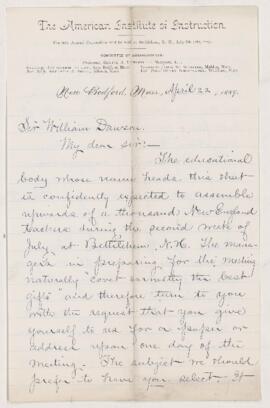 The American Institute of Instruction.
New Bedford, Mass., April 22, 1889.
Sir William Dawson.
My dear sir:—
The educational
body whose name heads this sheet
is confidently expected to assemble
upwards of a thousand New England
teachers during the second week of
July, at Bethlehem, N.H. The mana-
gers in preparing for the meeting
naturally covet earnestly the best
gifts and therefore turn to you
with the request that you give
yourself to us for a paper or
address upon one day of the
meeting. The subject we should
prefer to have you select. It